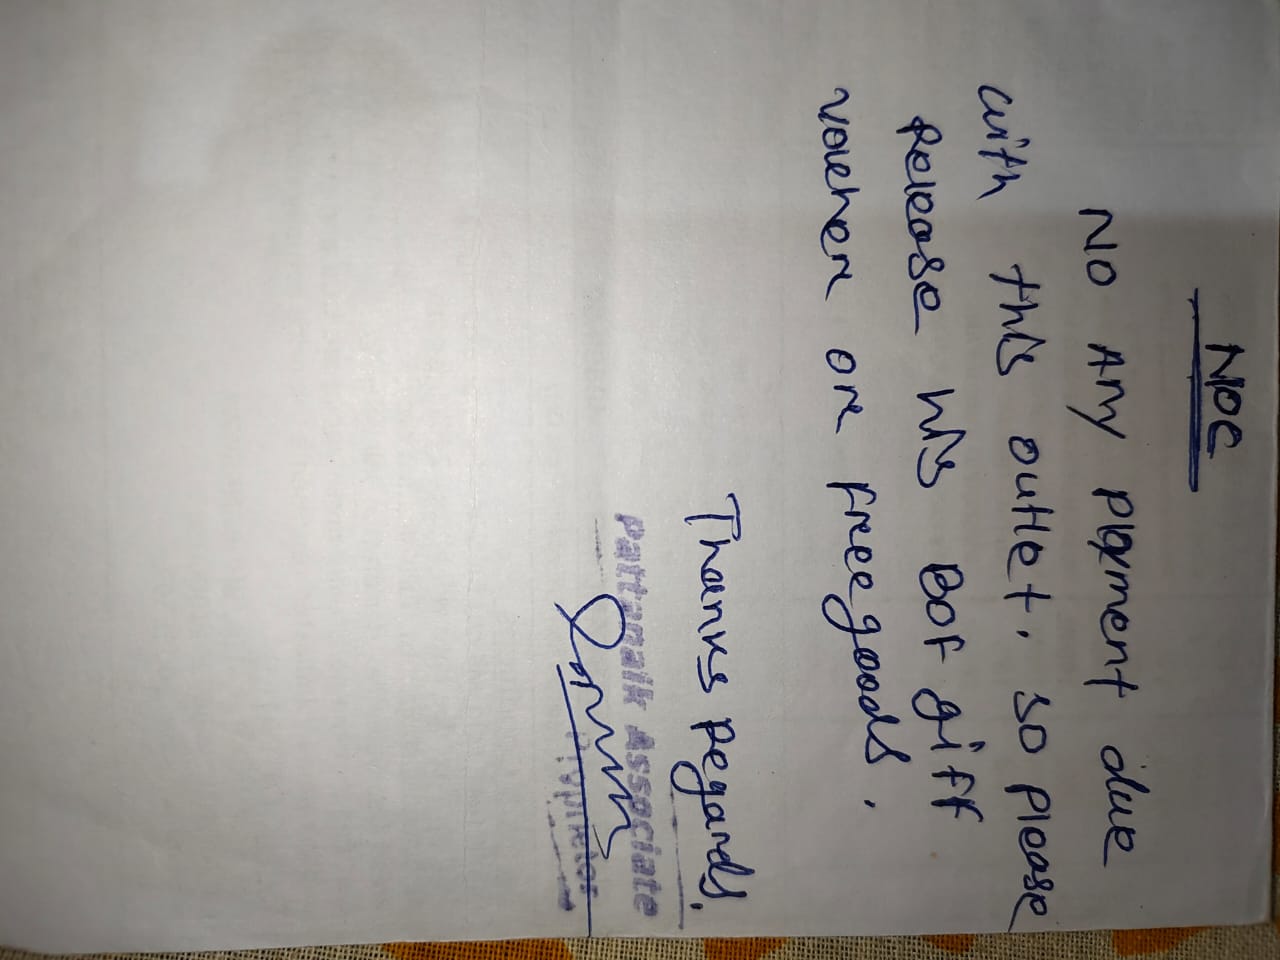 NOC
No Any Payment due
with this outlet. so please
Release his BOF giff
voucher or free goods.
Thanks Regards.
Pattanaik Associate